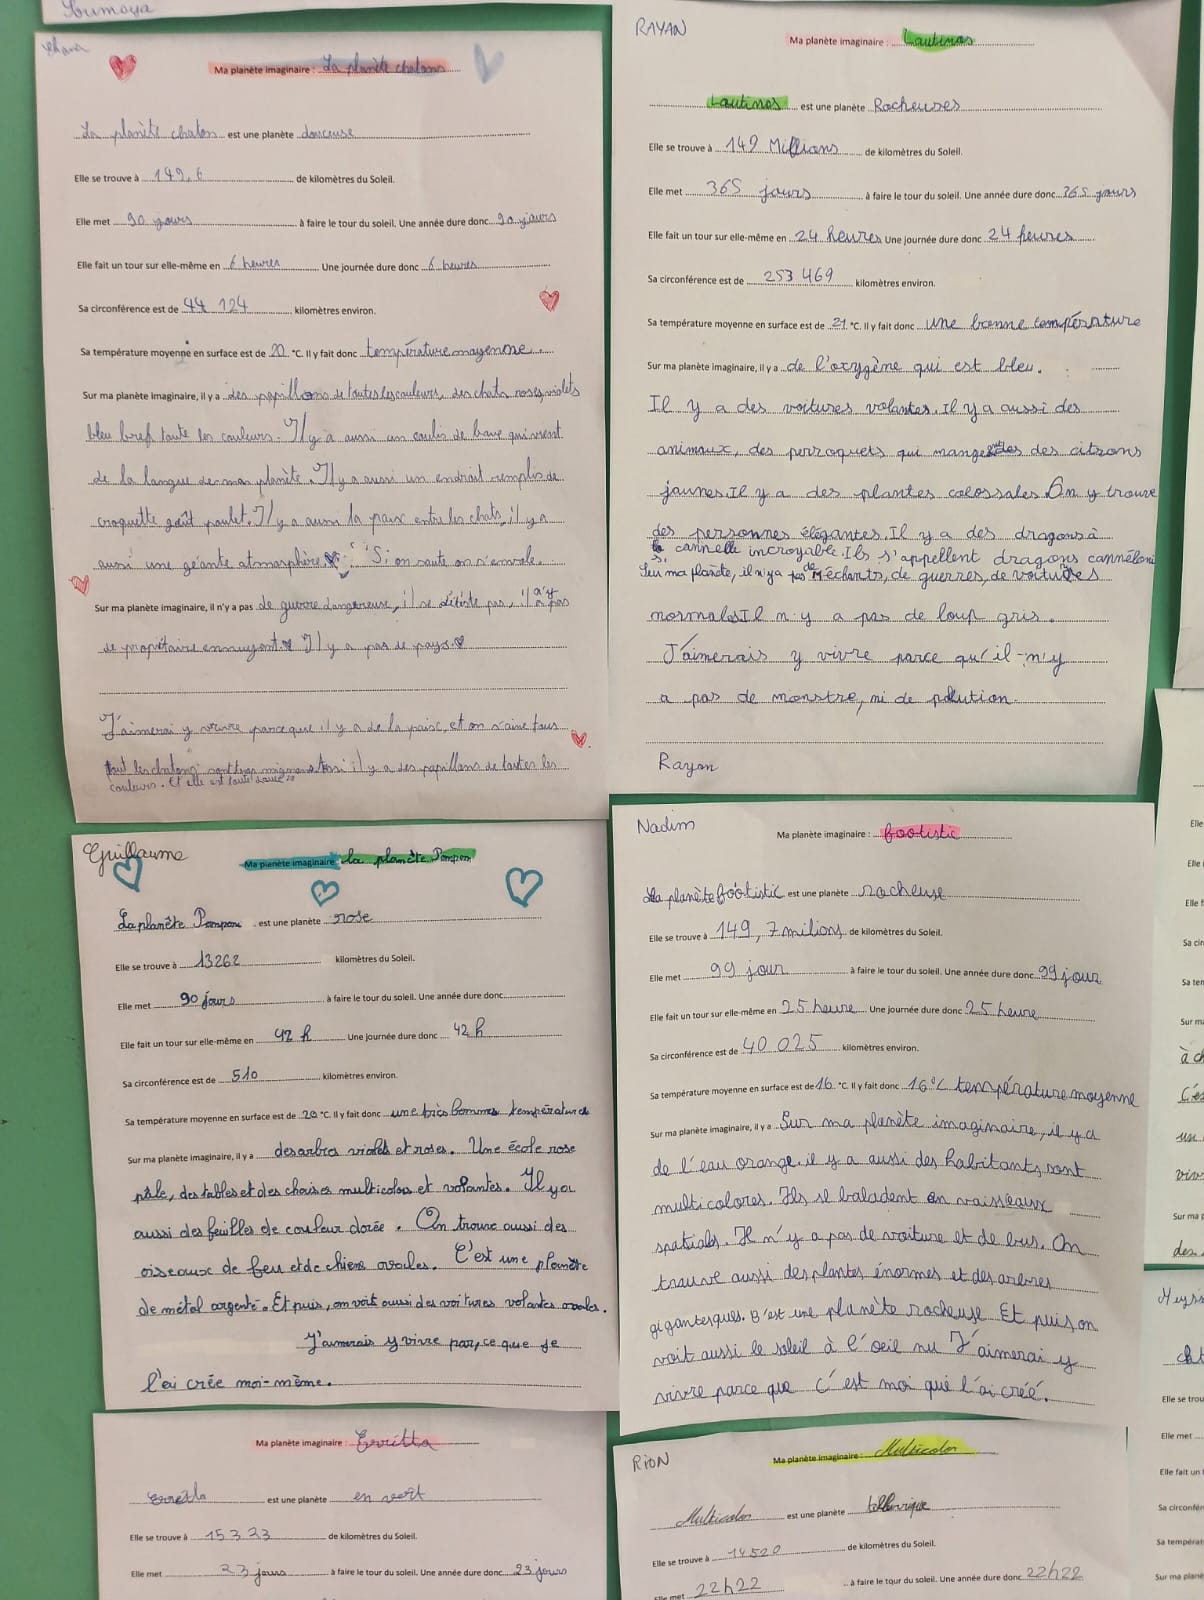 Soumaya
Ma planète imaginaire : La planète chatons
La planète chaton est une planète douceuse
Elle se trouve à 149,6 de kilomètres du Soleil.
Elle met 90 jours à faire le tour du soleil. Une année dure donc 90 jours
Elle fait un tour sur elle-même en 6 heures Une journée dure donc 6 heures
Sa circonférence est de 44 124 kilomètres environ.
Sa température moyenne en surface est de 20 °C. Il y fait donc température moyenne.
Sur ma planète imaginaire, il y a des papillons de toutes les couleurs, des chats roses, violets
bleu bref toute les couleurs. Il y a aussi un coulis de bave qui vient
de la langue de mon planète. Il y a aussi un endroit remplis de
croquette goût poulet. Il y a aussi la paix entre les chats, il y a
aussi une géante atmosphère. Si on saute on s'envole.
Sur ma planète imaginaire, il n'y a pas de guerre dangereuse, il se déteste pas, il n'y a pas
de propriétaire ennuyant. Il y a pas de pays.
J'aimerai y vivre parce que il y a de la paix, et on s'aime tous
tout les chatons sont trop mignons aussi il y a des papillons de toutes les
couleurs. Et elle est toute douce
RAYAN
Ma planète imaginaire : Lautinos
Lautinos est une planète Rocheuses
Elle se trouve à 149 Millions de kilomètres du Soleil.
Elle met 365 jours à faire le tour du soleil. Une année dure donc 365 jours
Elle fait un tour sur elle-même en 24 heures Une journée dure donc 24 heures
Sa circonférence est de 253 469 kilomètres environ.
Sa température moyenne en surface est de 21 °C. Il y fait donc une bonne température
Sur ma planète imaginaire, il y a de l'oxygène qui est bleu.
Il y a des voitures volantes. Il y a aussi des
animaux, des perroquets qui mange des citrons
jaunes. Il y a des plantes colossales. On y trouve
des personnes élégantes. Il y a des dragons à
cannelle incroyable. Ils s'appellent dragons canneloni
Sur ma planète, il n'y a pas de méchants, de guerres, de voitures
normales. Il n'y a pas de loup gris.
J'aimerais y vivre parce qu'il n'y
a pas de monstre, ni de polution.
Rayan
Guillaume
Ma planète imaginaire : la planète Pompom
La planète Pompom est une planète rose
Elle se trouve à 13262 kilomètres du Soleil.
Elle met 90 jours à faire le tour du soleil. Une année dure donc
Elle fait un tour sur elle-même en 42 h Une journée dure donc 42 h
Sa circonférence est de 510 kilomètres environ.
Sa température moyenne en surface est de 20 °C. Il y fait donc une très bonnes température
Sur ma planète imaginaire, il y a des arbres violets et roses. Une école rose
pâle, des tables et des chaises multicolors et volantes. Il y a
aussi des feuilles de couleur dorée. On trouve aussi des
oiseaux de feu et de chiens ovales. C'est une planète
de métal argenté. Et puis, on voit aussi des voitures volantes ovales.
J'aimerais y vivre par, ce que je
l'ai crée moi-même.
Nadim
Ma planète imaginaire : footistic
La planète footistic est une planète rocheuse
Elle se trouve à 149,7 milions de kilomètres du Soleil.
Elle met 99 jour à faire le tour du soleil. Une année dure donc 99 jour
Elle fait un tour sur elle-même en 25 heure Une journée dure donc 25 heure
Sa circonférence est de 40 025 kilomètres environ.
Sa température moyenne en surface est de 16 °C. Il y fait donc 16°C température moyenne
Sur ma planète imaginaire, il y a Sur ma planète imaginaire, il y a
de l'eau orange. il y a aussi des habitants, sont
multicolores. Ils se baladent en vaisseaux
spatials. Il n'y a pas de voiture et de bus. On
trouve aussi des plantes énormes et des arbres
gigantesques. C'est une planète rocheuse Et puis on
voit aussi le soleil à l'oeil nu J'aimerai y
vivre parce que c'est moi qui l'ai créé.
Ma planète imaginaire : Erritta
est une planète en vert
Elle se trouve à 15323 de kilomètres du Soleil.
Elle met 23 jours à faire le tour du soleil. Une année dure donc 23 jours
RION
Ma planète imaginaire : Multicolor
Multicolor est une planète tellurique
Elle se trouve à 14520 de kilomètres du Soleil.
Elle met 22h22 à faire le tour du soleil. Une année dure donc 22h22
Elle
Elle
Elle f
Sa cir
Sa ten
Sur ma
à c
C'es
un
viv
Sur ma p
des
Elle se trou
Elle met
Elle fait un t
Sa circonfér
Sa températ
Sur ma planè